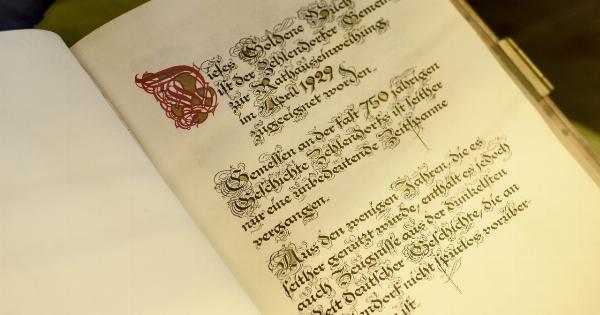 Dieses Goldene Buch
ist der Zehlendorfer Gemein
zur Rathauseinweihung
im April 1929
zugeeignet worden.
Gemessen an der fast 750 jährigen
Geschichte Zehlendorfs ist seither
nur eine unbedeutende Zeitspanne
vergangen.
Aus den wenigen Jahren, die es
seither genützt wurde, enthält es jedoch
auch Zeugnisse aus der dunkelsten
Zeit deutscher Geschichte, die an
Zehlendorf nicht spurlos vorüber
ist.